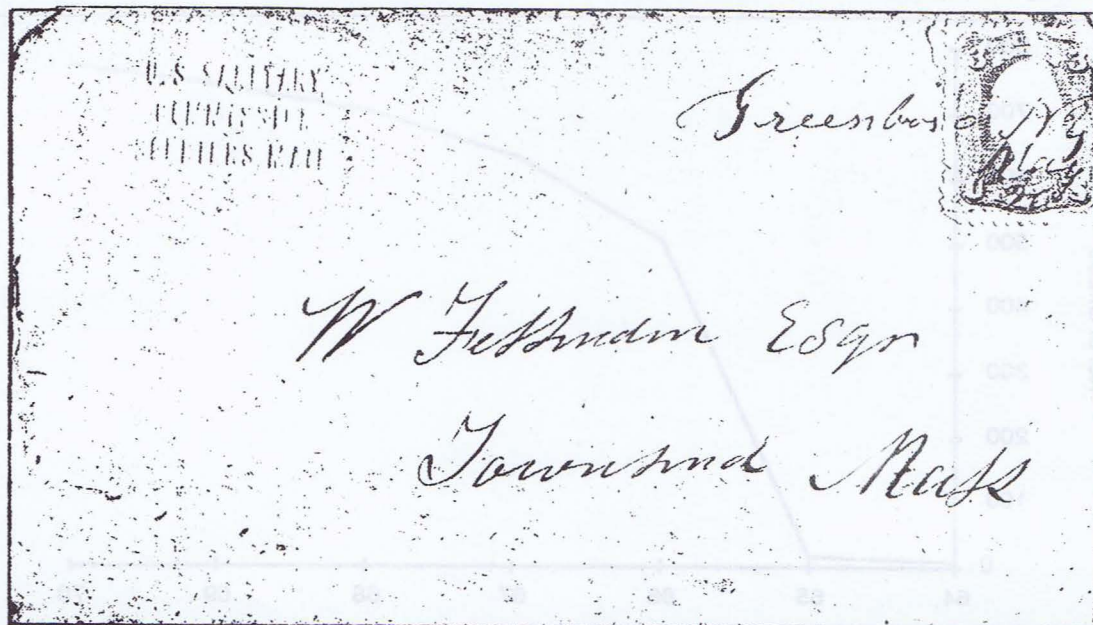 U.S SANITARY
COMMISSION
SOLDIERS MAIL
Greensboro NC
May
W Fessenden Esqr
Townsend Mass